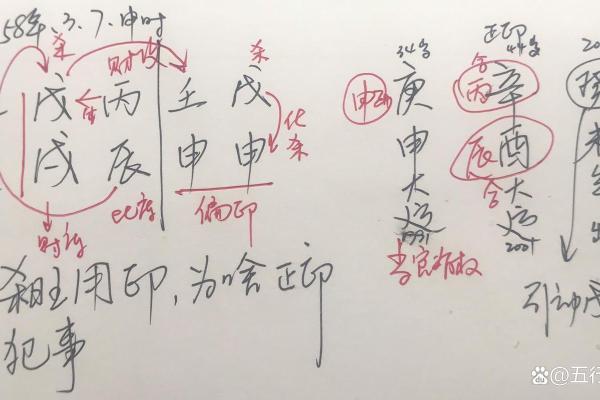 58年.3.7.申时
杀
财
戊 丙 壬 戊
生
化
杀
戌 辰 申 申
偏印
34岁
庚
申
大
运
1991
当官有权
正印
44岁
合
丙
辛
辰
酉
合
大
运
2001
20
癸
未
引动
杀重用印,为啥正印
犯事
@五行